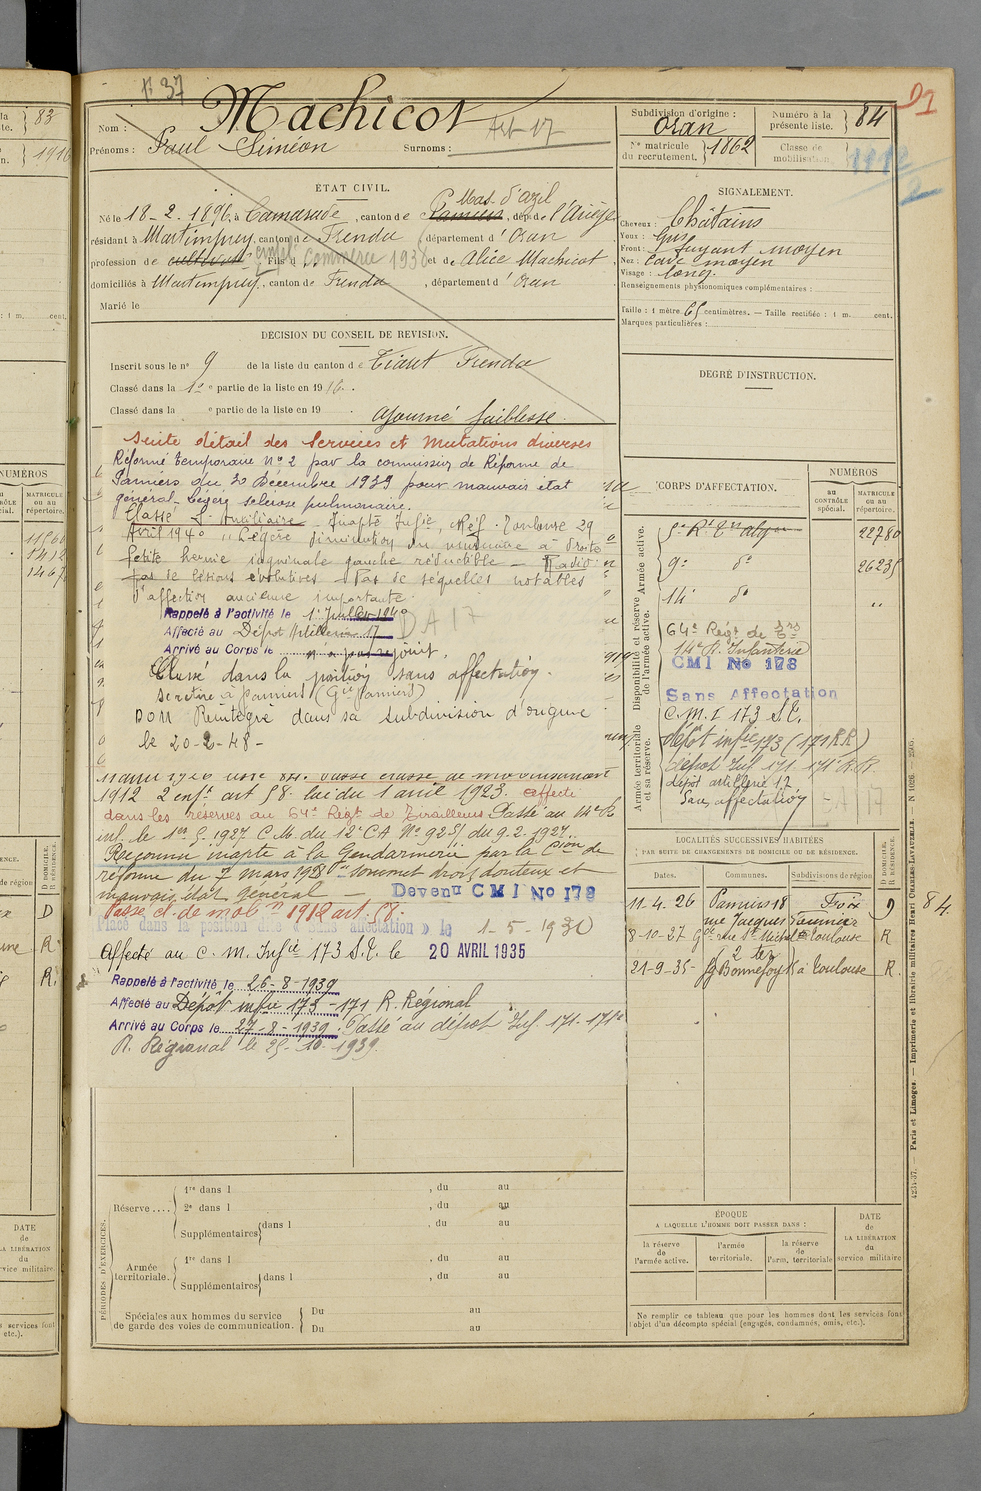 N 37
Nom : Machicot
Art 17
Prénoms : Paul Siméon Surnoms :
Subdivision d'origine :
Oran
Nº matricule
du recrutement. } 1862
Numéro à la
présente liste. } 84
Classe de
mobilisation.
1912
2
D1
ÉTAT CIVIL.
Né le 18-2.1896, à Camarade, canton de Pamiers Mas d'azil, dép. de l'Ariège
résidant à Martimprey, canton de Frenda, département d'Oran
profession de cultivateur empl. commerce 1938, Fils d et de Alice Machicot,
domiciliés à Martimprey, canton de Frenda, département d'Oran
Marié le
SIGNALEMENT.
Cheveux : Châtains
Yeux : Gris
Front : fuyant moyen
Nez : Cave moyen
Visage : long.
Renseignements physionomiques complémentaires :
Taille : 1 mètre 65 centimètres. — Taille rectifiée : 1 m. cent.
Marques particulières :
DÉCISION DU CONSEIL DE REVISION.
Inscrit sous le nº 9 de la liste du canton de Tiaret Frenda
Classé dans la 1º e partie de la liste en 1916.
Classé dans la e partie de la liste en 19 .
Ajourné faiblesse.
DEGRÉ D'INSTRUCTION.
Suite détail des Services et Mutations diverses
Réformé temporaire nº 2 par la commission de Réforme de
Pamiers du 20 Décembre 1939 pour mauvais état
général. Légère sclérose pulmonaire.
Classé S. Auxiliaire Inapte Infie, Réf. Toulouse 29
Avril 1940 "Légère diminution du murmure à droite
Petite hernie inguinale gauche réductible — Radio :
pas de lésions évolutives — Pas de séquelles notables
d'affection ancienne importante.
Rappelé à l'activité le 1r Juillet 1940
Affecté au Dépôt Artillerie 17
DA 17
Arrivé au Corps le n'a pas rejoint.
Classé dans la position sans affectation.
se retire à Pamiers (Gie Pamiers)
DOM Réintégré dans sa subdivision d'origine
le 20-2-48-
11 avril 1926 classe de mobilisation
1912 2 enfts art 58 loi du 1 avril 1923. affecté
dans les réserves au 64e Régt de Tirailleurs Passé au 14e R
inf. le 1er 5.1927. C.M. du 12e CA Nº 925/ du 9.2.1927.
Reconnu inapte à la Gendarmerie par la Cion de
réforme du 7 mars 1928 sommet droit douteux et
mauvais état général — Devenu CMI No 178
Passé cl. de mobon 1912 art. 58.
Placé dans la position dite « Sans affectation » le 1-5-1930
Affecté au C. M. Infie 173 S.E. le 20 AVRIL 1935
Rappelé à l'activité le 26-8-1939
Affecté au Dépôt infie 173 - 171 R. Régional
Arrivé au Corps le 27-8-1939. Passé au dépôt Inf. 171. 171e
R. Régional le 25-10-1939.
CORPS D'AFFECTATION.
NUMÉROS
au
CONTRÔLE
spécial.
MATRICULE
ou au
répertoire.
Armée active.
22780
9e dº 26235
14e dº ..
Disponibilité et réserve
de l'armée active.
64e Régt de
14e R. Infanterie
CMI No 178
Sans Affectation
C.M.I 173 S.E.
Armée territoriale
et sa réserve.
dépôt infie 173 (171 RR)
dépôt Inf 171. 171e R.R.
dépôt artillerie 17
Sans affectation
DA 17
LOCALITÉS SUCCESSIVES HABITÉES
PAR SUITE DE CHANGEMENTS DE DOMICILE OU DE RÉSIDENCE.
Dates. Communes. Subdivisions de région
D DOMICILE.
R RÉSIDENCE.
11.4.26 Pamiers 18 Foix D
rue Jacques Fournier
8-10-27 Gde rue St Michel Toulouse R
2 ter
21-9-35- fg Bonnefoy à Toulouse R.
84.
PÉRIODES D'EXERCICES.
Réserve.... { 1re dans l , du au
2e dans l , du au
Supplémentaires { dans l , du au
Armée
territoriale. { 1re dans l , du au
Supplémentaires { dans l , du au
Spéciales aux hommes du service
de garde des voies de communication. { Du au
Du au
ÉPOQUE
A LAQUELLE L'HOMME DOIT PASSER DANS :
la réserve
de
l'armée active.
l'armée
territoriale.
la réserve
de
l'arm. territoriale
DATE
de
LA LIBÉRATION
du
service militaire
Ne remplir ce tableau que pour les hommes dont les services font
l'objet d'un décompte spécial (engagés, condamnés, omis, etc.).
4231-37. — Paris et Limoges. — Imprimerie et librairie militaires Henri CHARLES-LAVAUZELLE.
83
1916
NUMÉROS
MATRICULE
ou au
répertoire.
D DOMICILE.
R RÉSIDENCE.
de région
D
R
R.
DATE
de
LA LIBÉRATION
du
service militaire.
s services font
etc.).